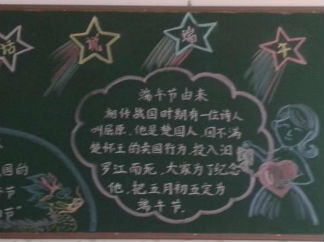 话 说 端 午
端午节由来
相传战国时期有一位诗人
叫屈原,他是楚国人,因不满
楚怀王的卖国行为,投入汨
罗江而死,大家为了纪念
他,把五月初五定为
端午节.
国的
午节
节"